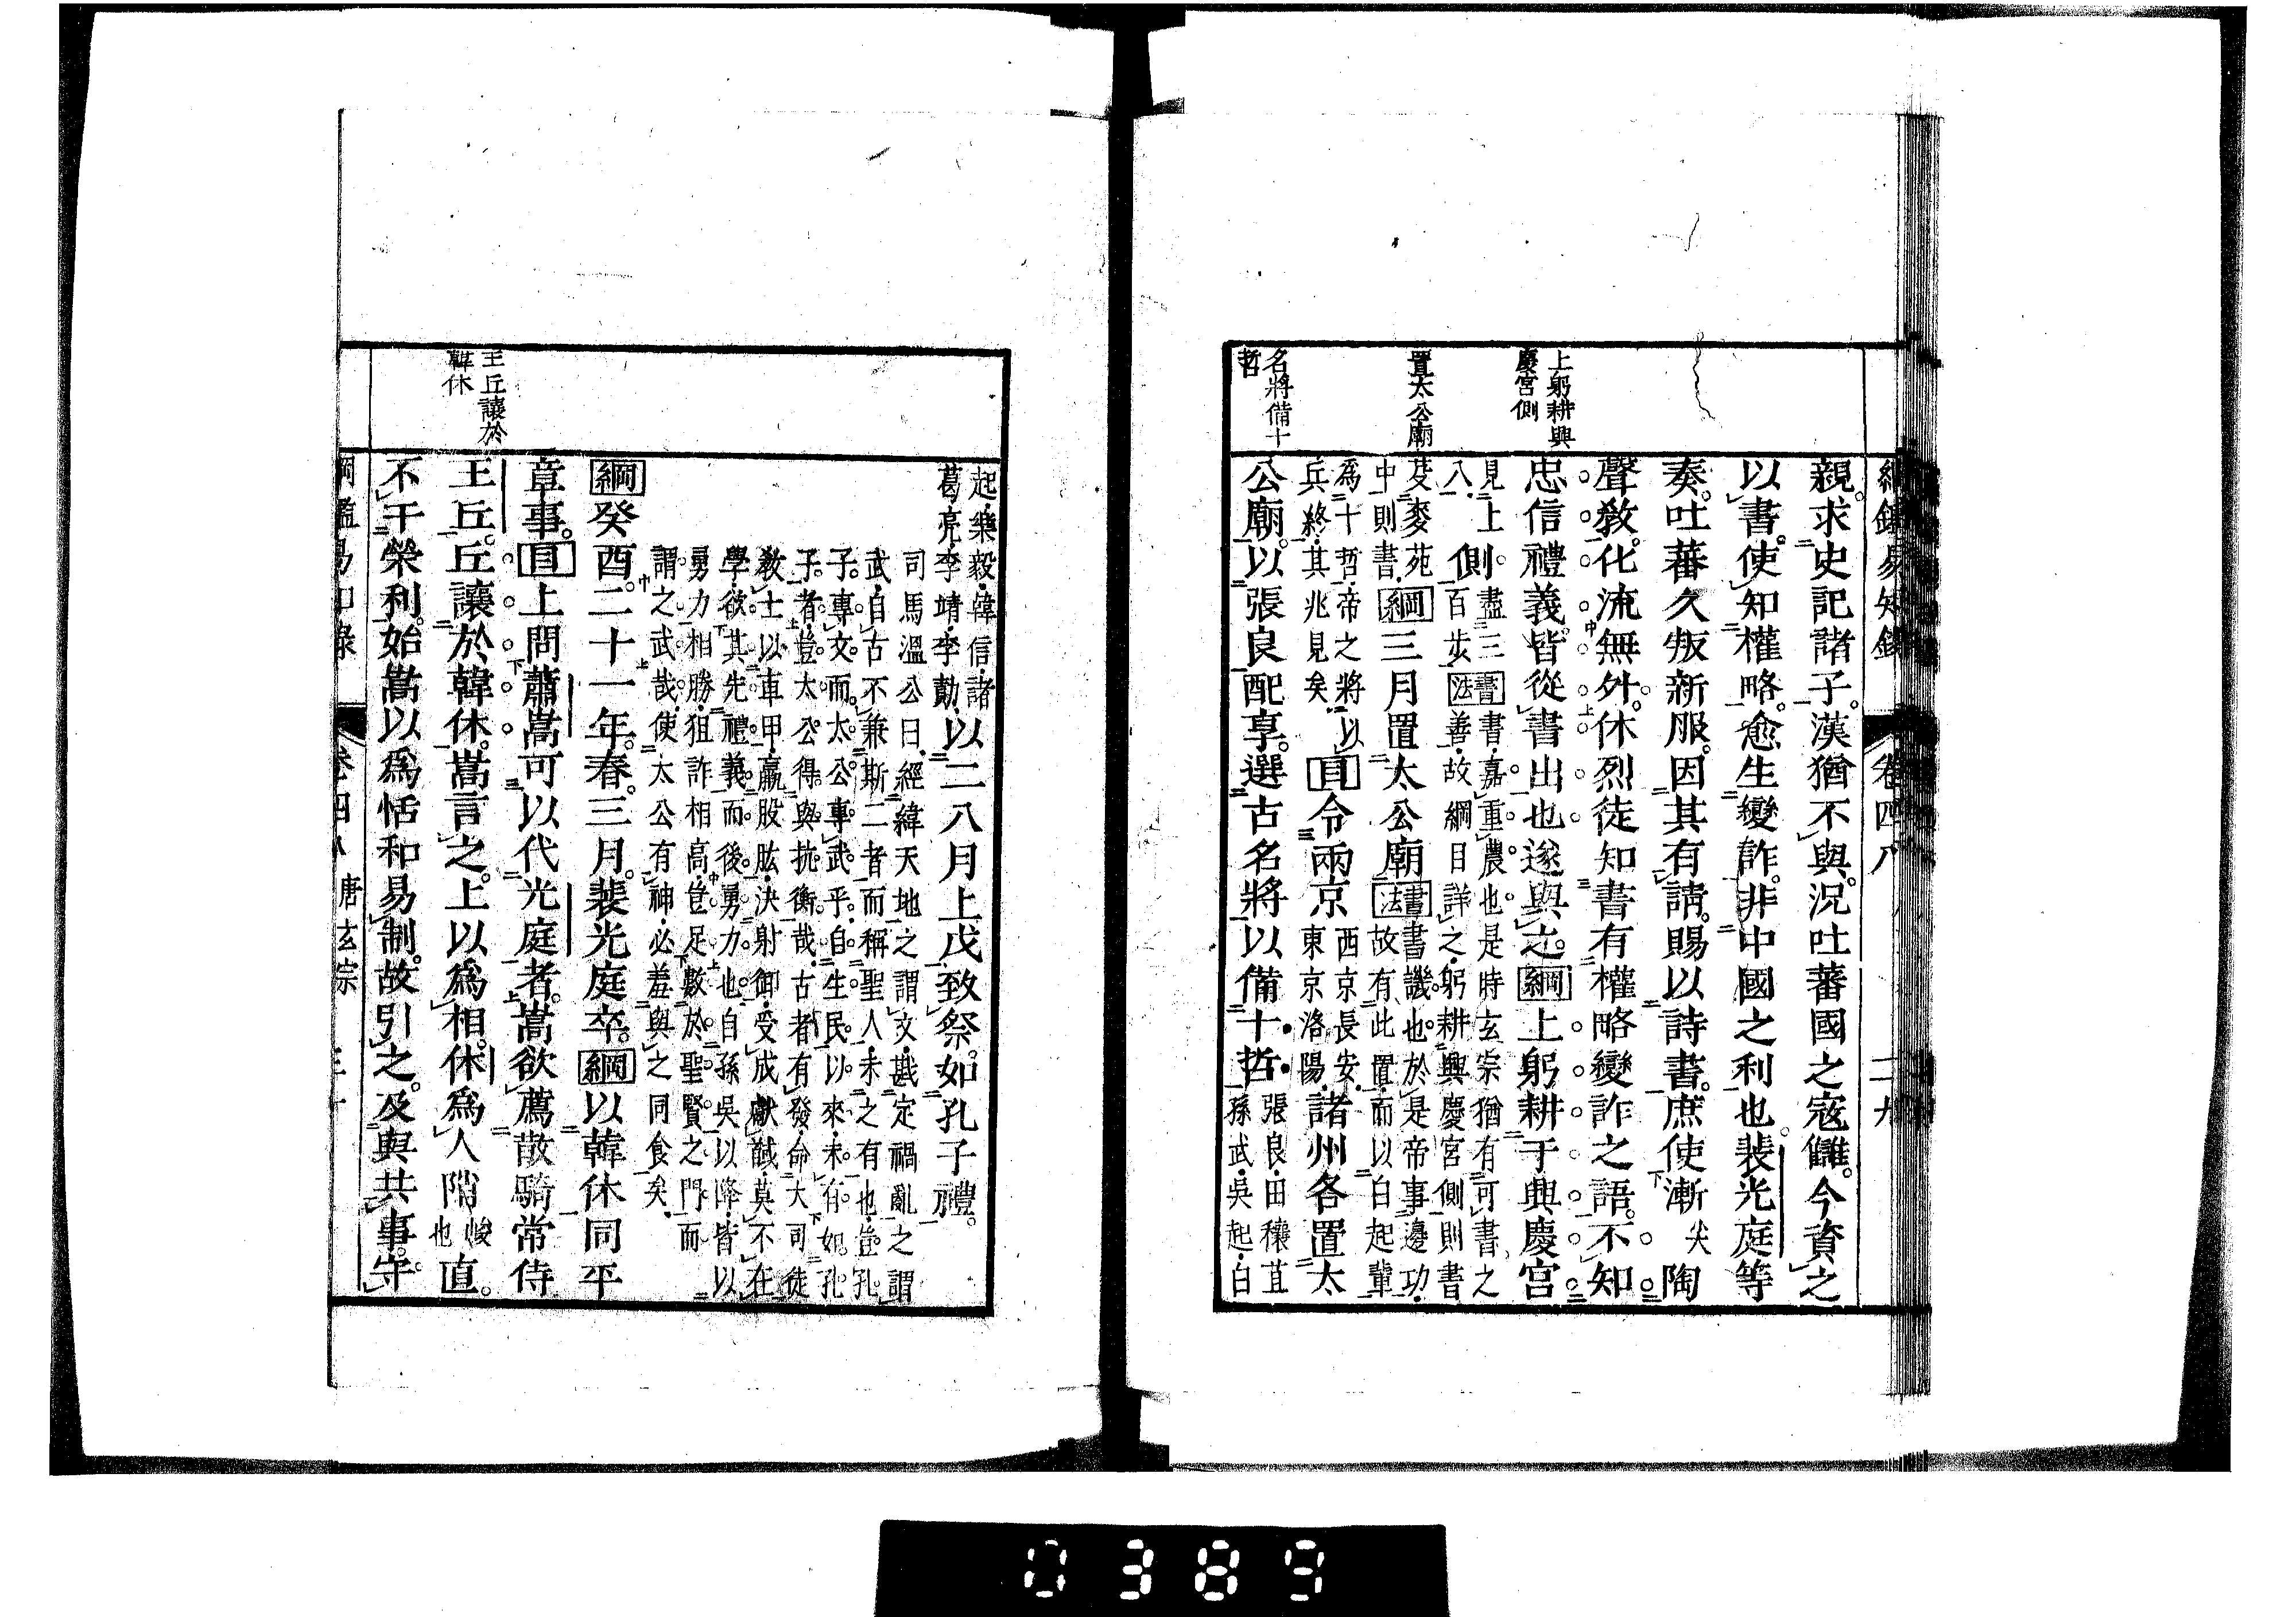 綱鑑易知錄 卷四八 二九
上躬耕興
慶宮側
置太公廟
名將備十
哲
親。求史記諸子。漢猶不與。況吐蕃國之寇讎。今資之
以書。使知權略。愈生變詐。非中國之利也。裴光庭等
奏。吐蕃久叛新服。因其有請。賜以詩書。庶使漸尖陶
聲敎。化流無外。休烈徒知書有權略變詐之語。不知
忠信禮義。皆從書出也。遂與之。綱上躬耕于興慶宮
側。盡三
百步
書法
書。嘉重農也。是時玄宗猶有可書之
善。故綱目詳之。躬耕興慶宮側則書
見上
八。
芟麥苑
中則書。
綱三月置太公廟
書法
書。譏也。於是帝事邊功。
故有此置。而以白起輩
爲十哲。帝之將以
兵終。其兆見矣。
目令兩京
西京長安。
東京洛陽。
諸州各置太
公廟。以張良配享。選古名將。以備十哲。
張良。田穰苴
孫武。吳起。白
王丘讓於
韓休
起。樂毅。韓信。諸
葛亮。李靖。李勣。
以二八月上戊致祭。如孔子禮。
司馬溫公曰。經緯天地之謂文。戡定禍亂之謂
武。自古不兼斯二者而稱聖人。未之有也。豈孔
子。專文。而太公專武乎。自生民以來。未有如孔
子。者。豈太公得與抗衡哉。古者有發。命大司徒
敎士以車甲。贏股肱。決射御。受成獻馘。莫不在
學。欲其先禮義。而後勇力也。自孫吳以降。皆以
勇力相勝。狙詐相高。豈足數於聖賢之門。而
謂之武哉。使太公有神。必羞與之同食矣。
綱癸酉。二十一年。春。三月。裴光庭卒。綱以韓休同平
章事。目上問蕭嵩可以代光庭者。嵩欲薦散騎常侍
王丘。丘讓於韓休。嵩言之。上以爲相。休爲人陗峻也直。
不干榮利。始嵩以爲恬和易制。故引之。及與共事。守
綱鑑易知錄 卷四八 唐玄宗